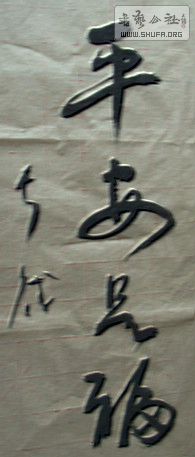 平安是福
书艺公社
WWW.SHUFA.ORG